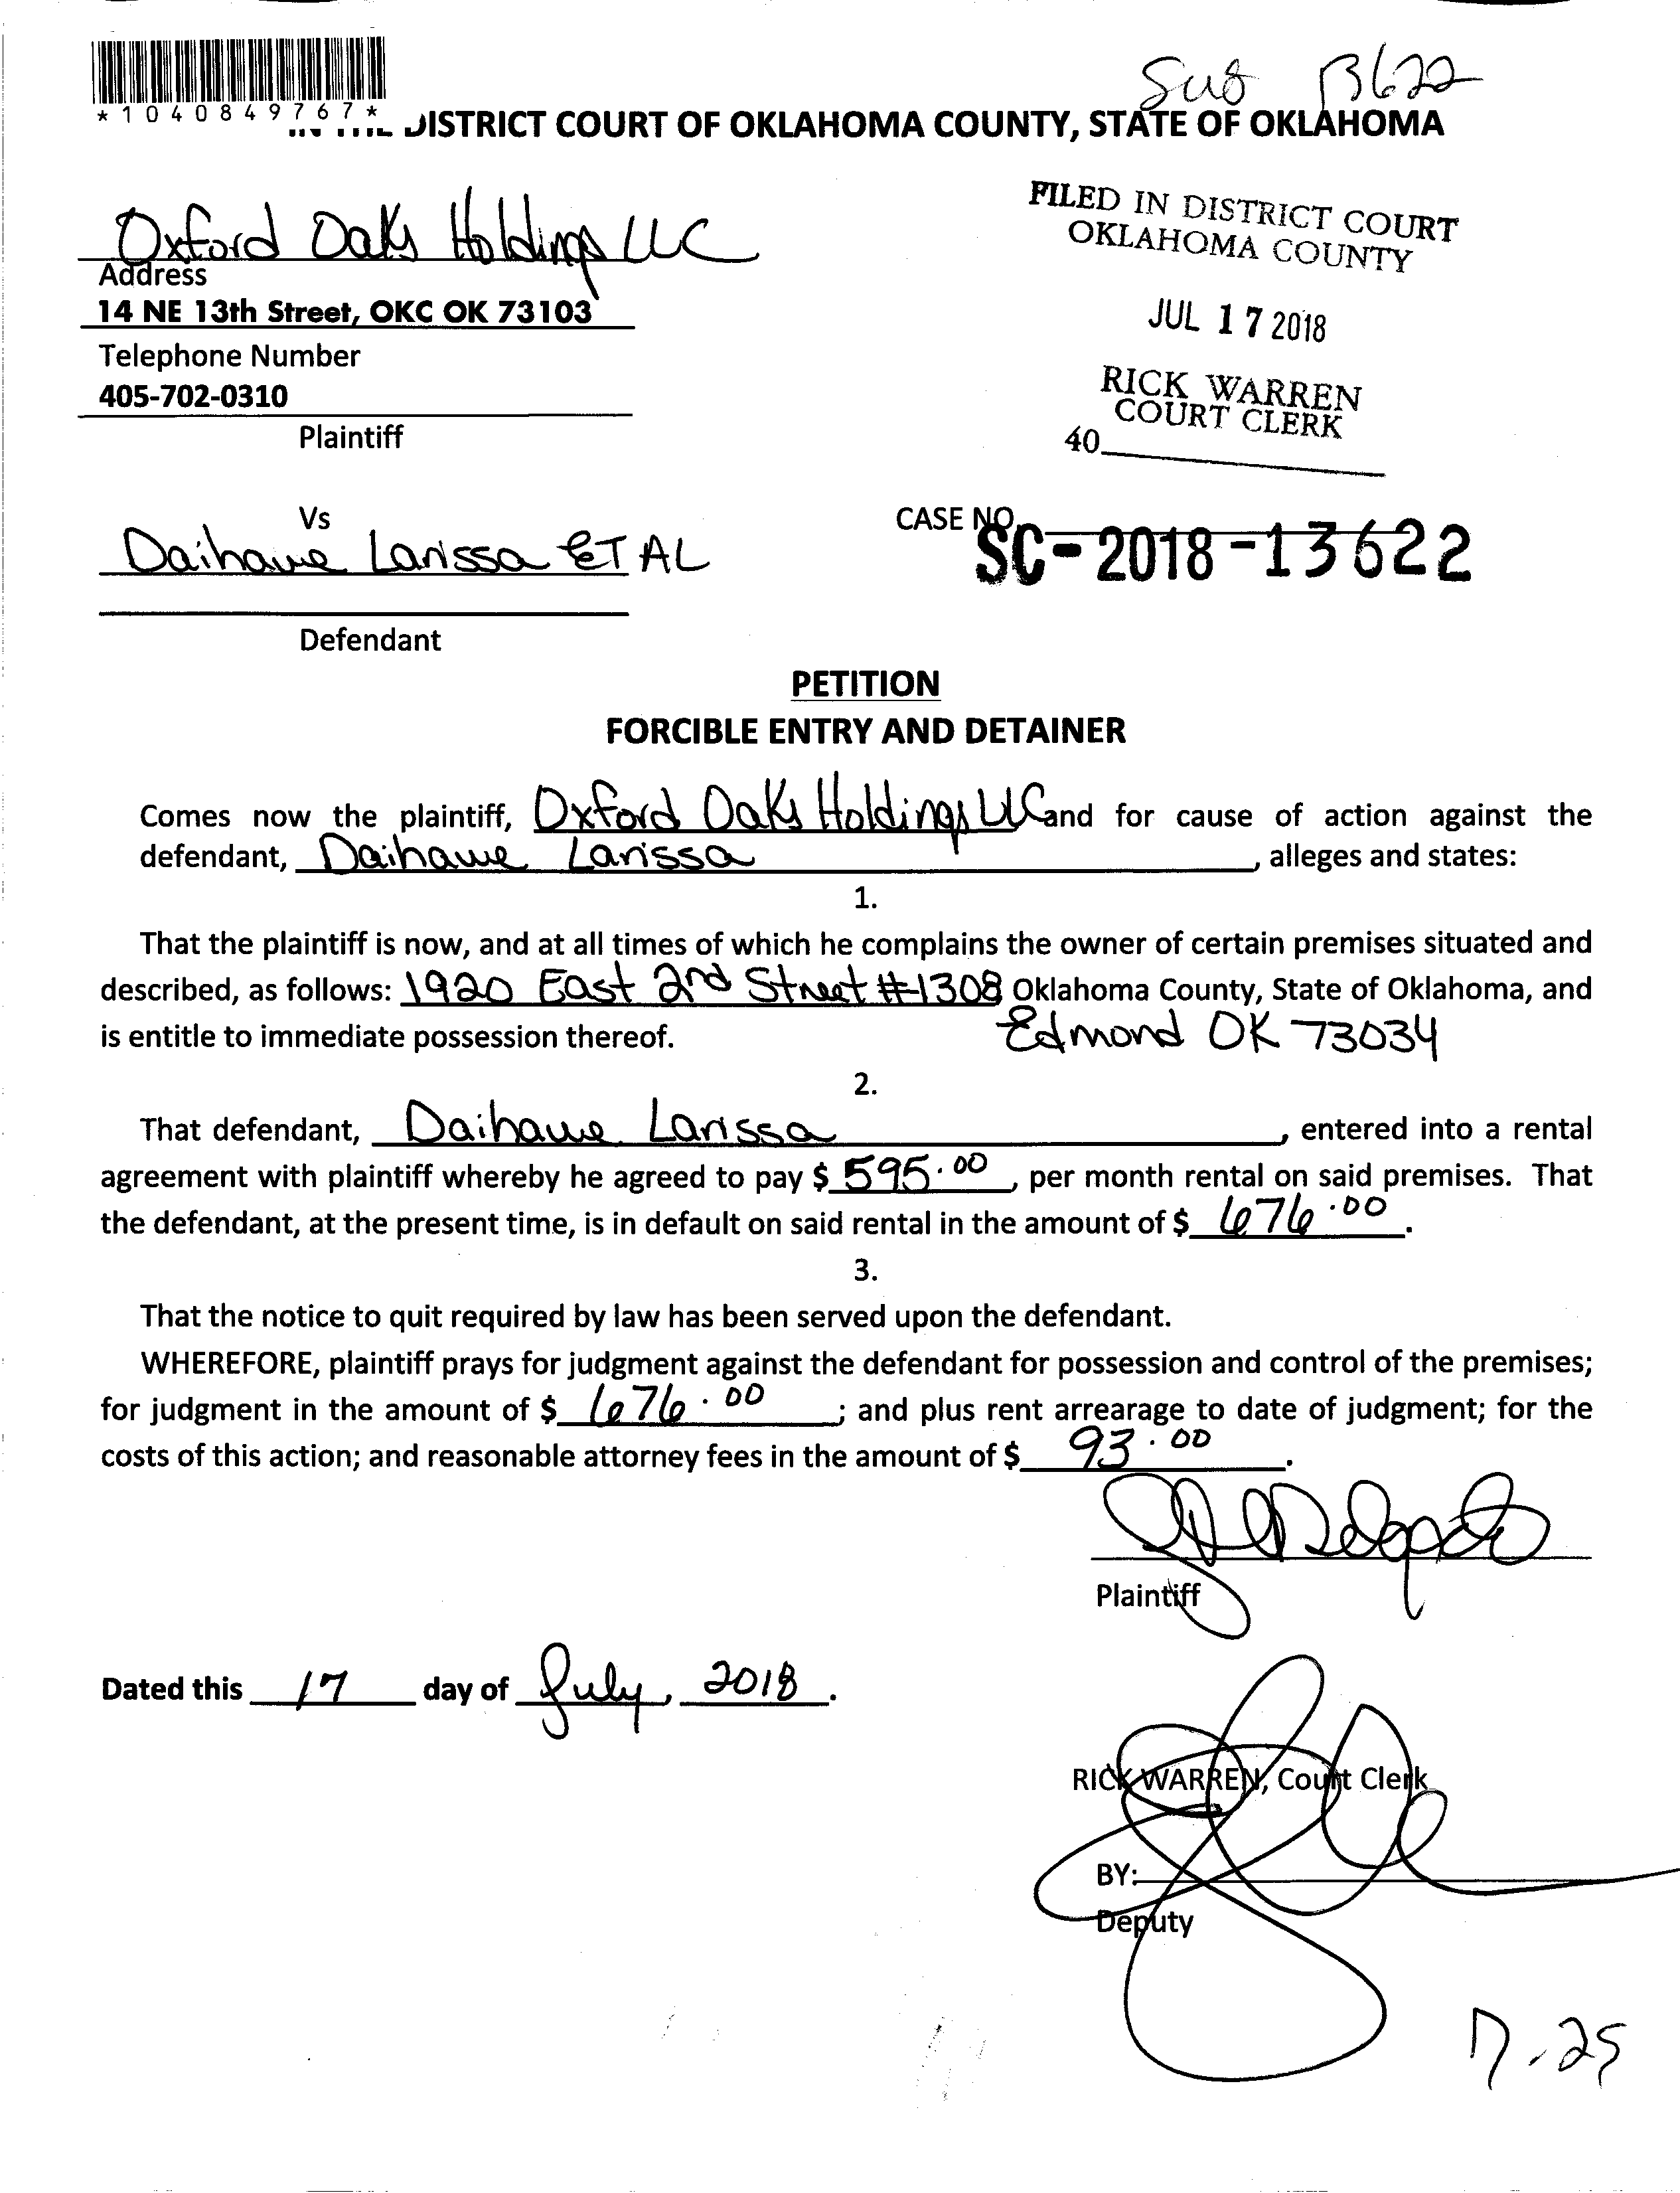 Sub 13622
*1040849767*
IN THE DISTRICT COURT OF OKLAHOMA COUNTY, STATE OF OKLAHOMA
Oxford Oaks Holdings LLC
Address
14 NE 13th Street, OKC OK 73103
Telephone Number
405-702-0310
Plaintiff
FILED IN DISTRICT COURT
OKLAHOMA COUNTY
JUL 17 2018
RICK WARREN
COURT CLERK
40
Vs
Daihawe Larissa ET AL
Defendant
CASE NO.
SC-2018-13622
PETITION
FORCIBLE ENTRY AND DETAINER
Comes now the plaintiff, Oxford Oaks Holdings LLC and for cause of action against the
defendant, Daihawe Larissa, alleges and states:
1.
That the plaintiff is now, and at all times of which he complains the owner of certain premises situated and
described, as follows: 1920 East 2nd Street #1308 Oklahoma County, State of Oklahoma, and
is entitle to immediate possession thereof. Edmond OK 73034
2.
That defendant, Daihawe Larissa, entered into a rental
agreement with plaintiff whereby he agreed to pay $ 595.00, per month rental on said premises. That
the defendant, at the present time, is in default on said rental in the amount of $ 676.00.
3.
That the notice to quit required by law has been served upon the defendant.
WHEREFORE, plaintiff prays for judgment against the defendant for possession and control of the premises;
for judgment in the amount of $ 676.00; and plus rent arrearage to date of judgment; for the
costs of this action; and reasonable attorney fees in the amount of $ 93.00.
Delgado
Plaintiff
Dated this 17 day of July, 2018.
RICK WARREN, Court Clerk
BY:
Deputy
7-25